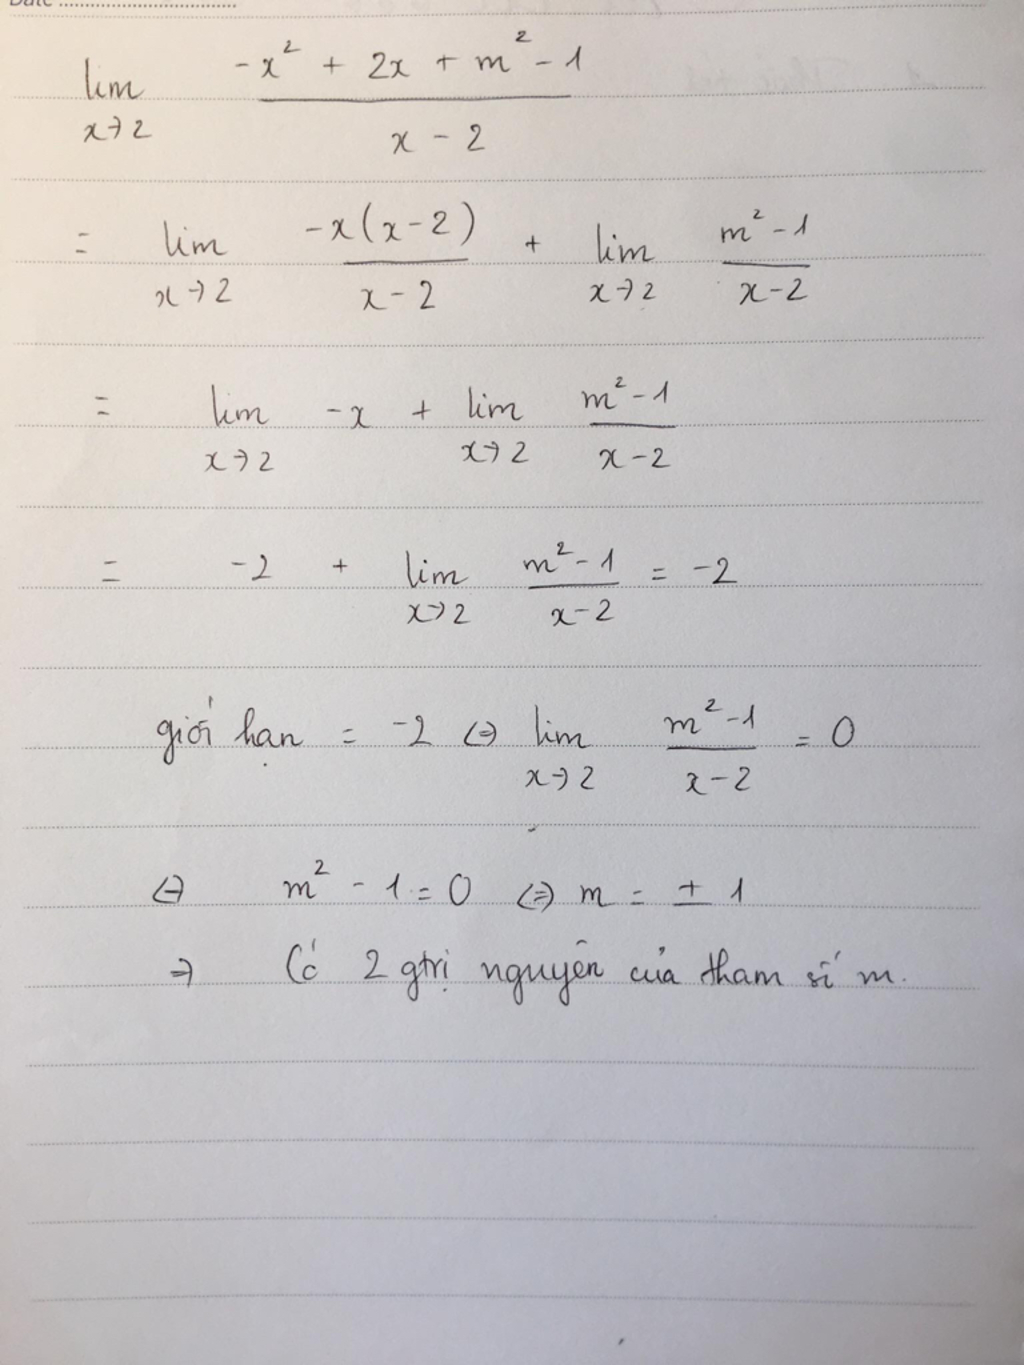 Date
lim x→2 (-x² + 2x + m² - 1)/(x - 2)
= lim x→2 -x(x-2)/(x-2) + lim x→2 (m²-1)/(x-2)
= lim x→2 -x + lim x→2 (m²-1)/(x-2)
= -2 + lim x→2 (m²-1)/(x-2) = -2
giới hạn = -2 ⇔ lim x→2 (m²-1)/(x-2) = 0
⇔ m² - 1 = 0 ⇔ m = ± 1
⇒ Có 2 gtrị nguyên của tham số m.